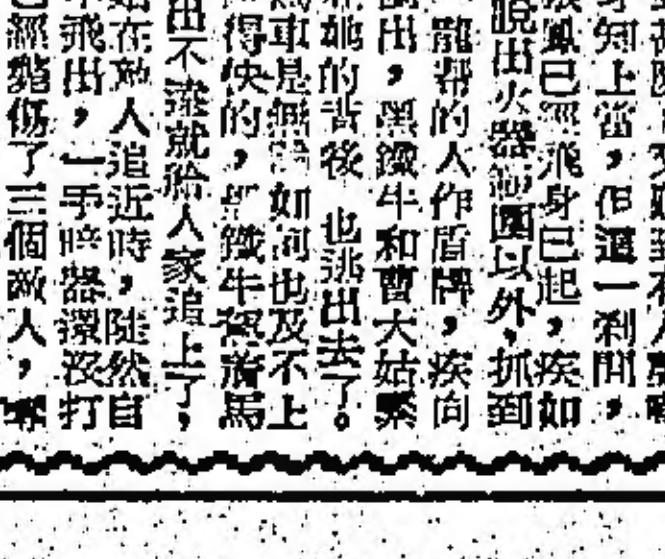 知上當,但這一刹間,
鳳已經飛身已起,疾如
脫出火器範圍以外,抓到
龍帮的人作盾牌,疾向
出,黑鐵牛和曹大姑緊
她的背後 也逃出去了。
馬車是無論如何也及不上
得快的,黑鐵牛和 着馬
出不遠就給人家追上了,
姑在敵人追近時,陡然自
飛出,一手暗器還沒打
已經斃傷了三個敵人,